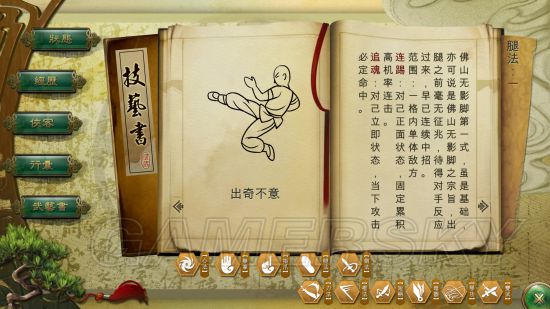 狀態
經歷
俠客
行囊
武藝書
技藝書
出奇不意
腿法：一
佛山无影脚第一式，虽是基础，
亦可说是佛山无影脚之宗旨，出
腿之前毫无征兆，待得对手反应
过来，早已连续中招。
范围：一格内单体敌方
连踢：对己正面状态，固定累积
高机率连击。
追魂：对己立即状态，当下攻击
必定命中。
GAMERSKY